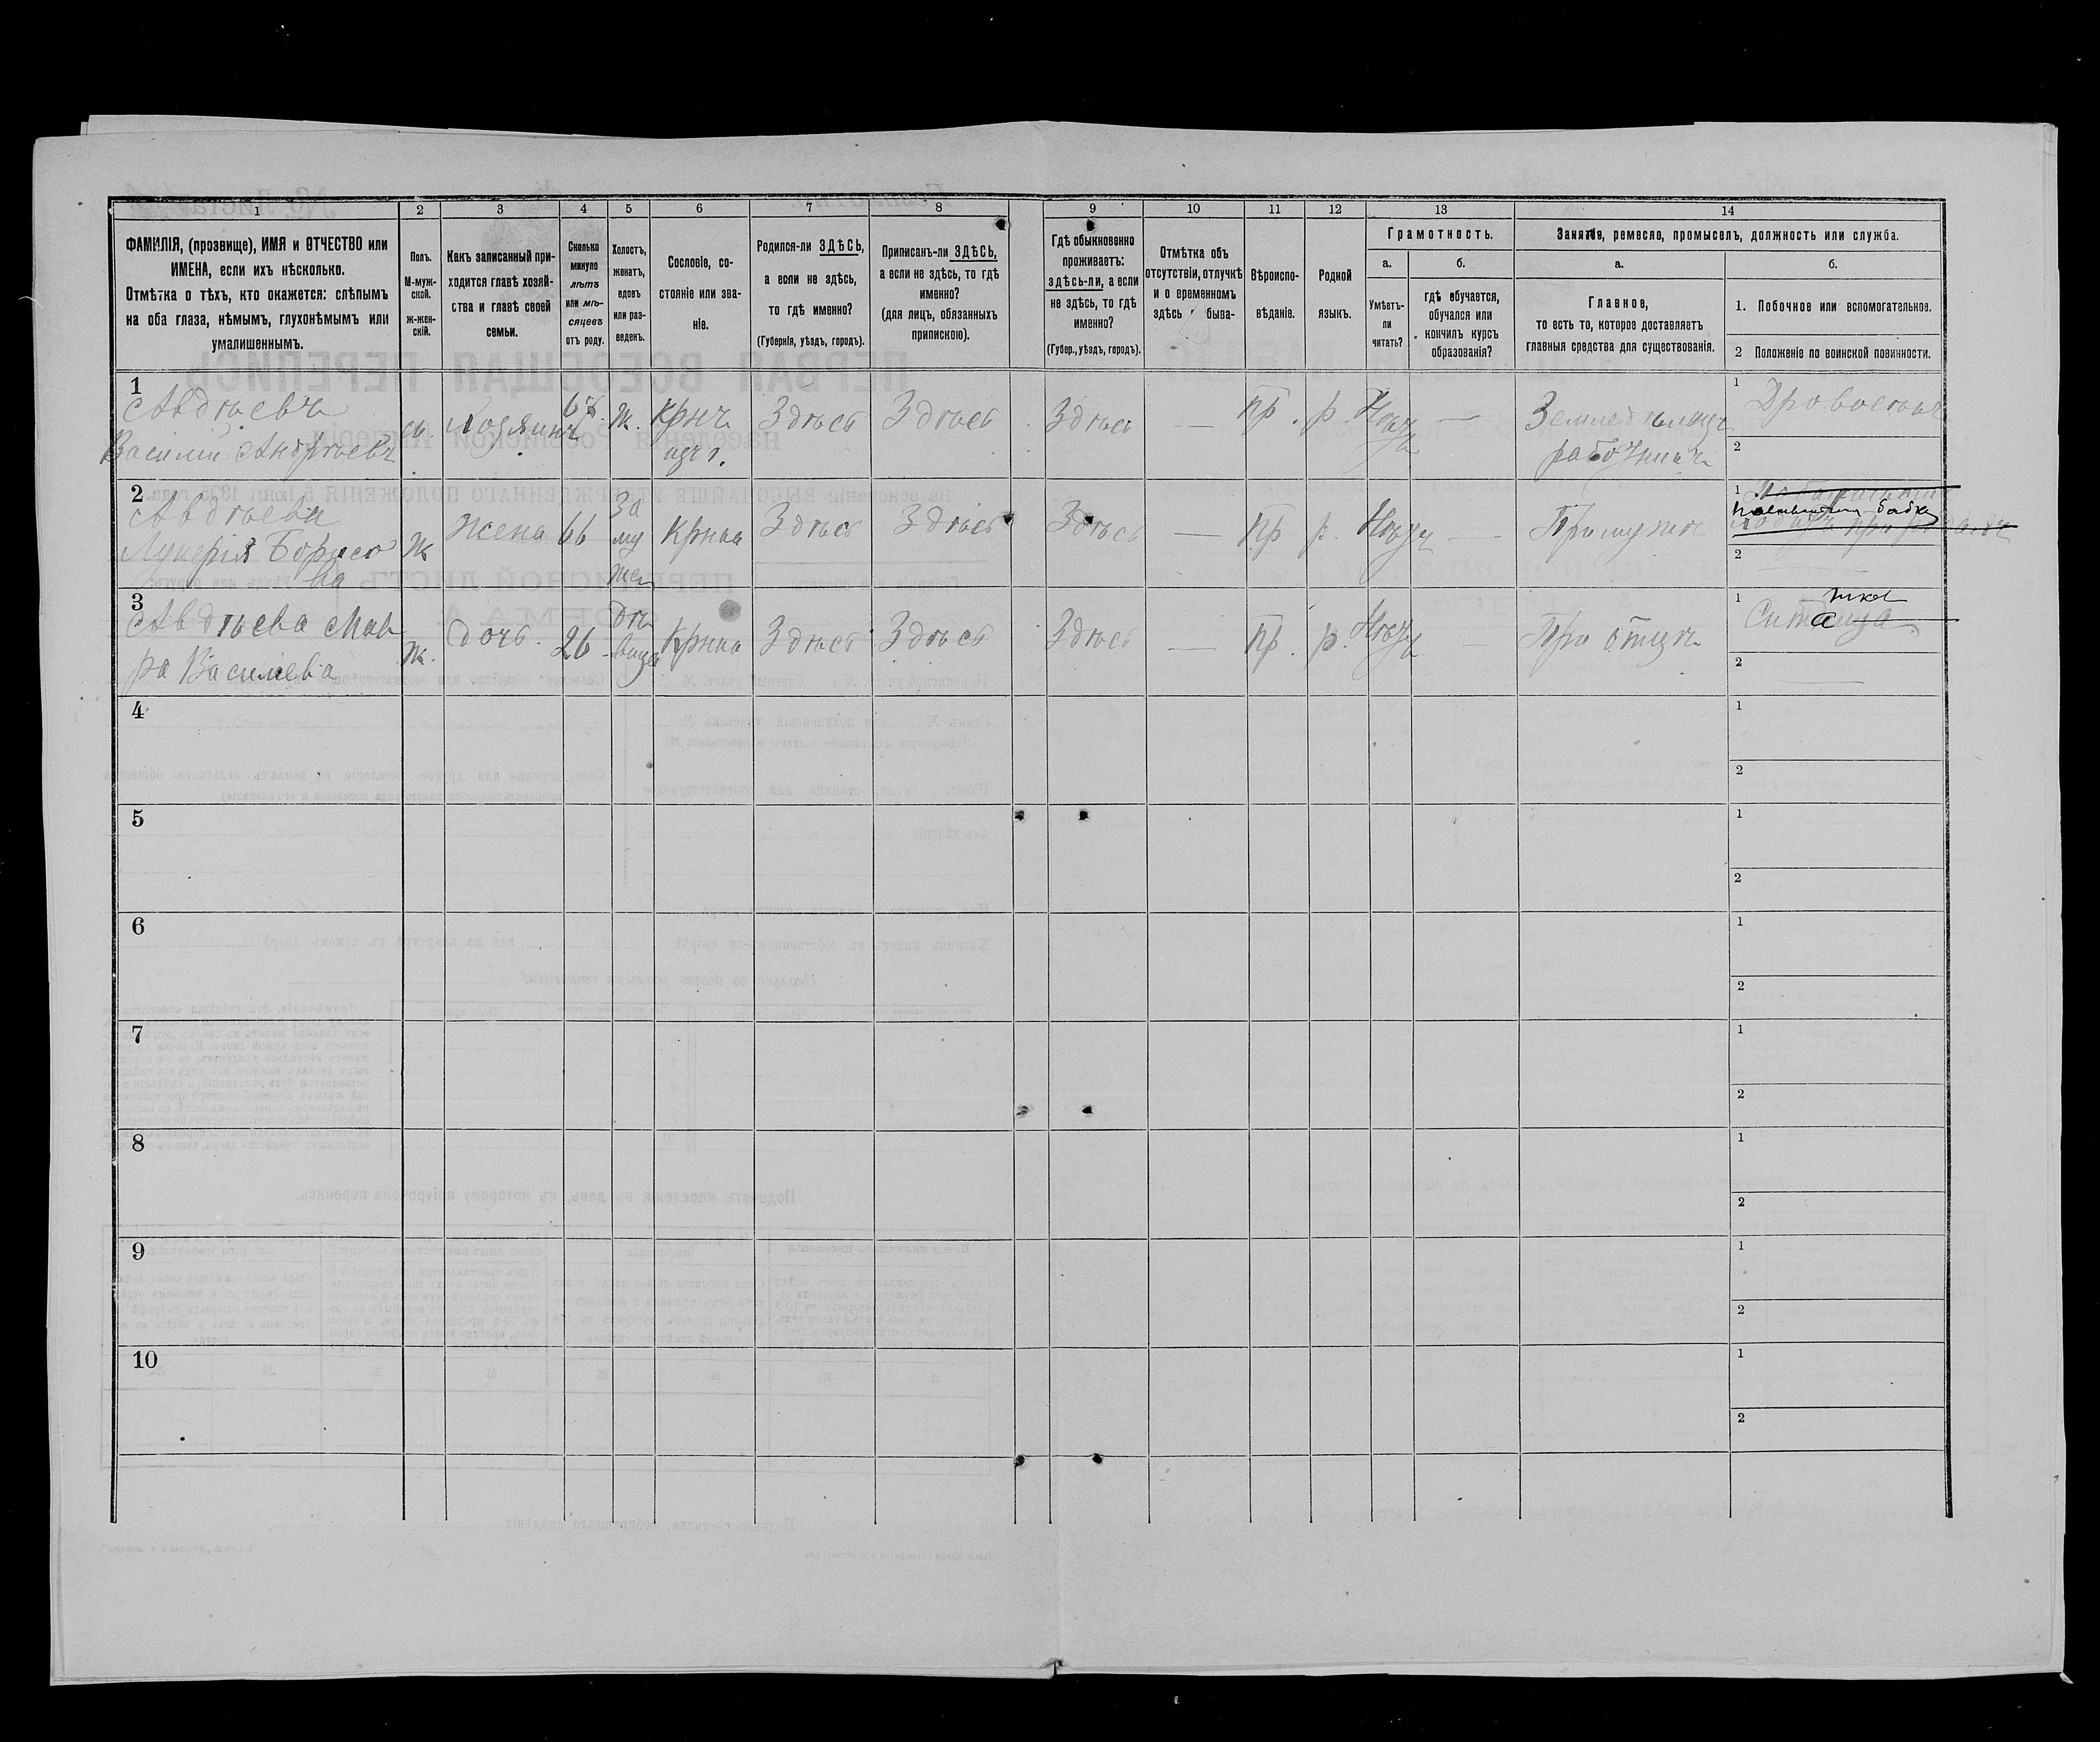 1
2
3
4
5
6
7
8
9
10
11
12
13
14
ФАМИЛІЯ, (прозвище), ИМЯ и ОТЧЕСТВО или
ИМЕНА, если ихъ нѣсколько.
Отмѣтка о тѣхъ, кто окажется: слѣпымъ
на оба глаза, нѣмымъ, глухонѣмымъ или
умалишеннымъ.
Полъ.
М-муж-
ской.
ж-жен-
скій.
Какъ записанный при-
ходится главѣ хозяй-
ства и главѣ своей
семьи.
Сколько
минуло
лѣтъ
или мѣ-
сяцевъ
отъ роду.
Холостъ,
женатъ,
вдовъ
или раз-
веденъ.
Сословіе, со-
стояніе или зва-
ніе.
Родился-ли ЗДѢСЬ,
а если не здѣсь,
то гдѣ именно?
(Губернія, уѣздъ, городъ).
Приписанъ-ли ЗДѢСЬ,
а если не здѣсь, то гдѣ
именно?
(для лицъ, обязанныхъ
припискою).
Гдѣ обыкновенно
проживаетъ:
здѣсь-ли, а если
не здѣсь, то гдѣ
именно?
(Губер., уѣздъ, городъ).
Отмѣтка объ
отсутствіи, отлучкѣ
и о временномъ
здѣсь быва-
Вѣроиспо-
вѣданіе.
Родной
языкъ.
Грамотность.
а.
Умѣетъ-
ли
читать?
б.
гдѣ обучается,
обучался или
кончилъ курсъ
образованія?
Занятіе, ремесло, промыселъ, должность или служба.
а.
Главное,
то есть то, которое доставляетъ
главныя средства для существованія.
б.
1. Побочное или вспомогательное.
2 Положеніе по воинской повинности.
1
Авдѣевъ
Василій Андрѣевъ
м.
Хозяинъ
67.
Ж.
Крнъ
изъ г.
Здѣсь
Здѣсь
Здѣсь
—
пр.
р.
—
Земледѣлецъ
работникъ
1 Дровосѣкъ
2
2
Авдѣева
Лукерія Борисо
ва
Ж
Жена
66
За
му
жем
Крнка
Здѣсь
Здѣсь
Здѣсь
—
пр
р.
—
При мужѣ
1
бабка
2
3
Авдѣева Мав
ра Василева
Ж.
Дочь.
26
Дѣ
вица
Крнка
Здѣсь
Здѣсь
Здѣсь
—
пр.
р.
—
При отцѣ
1
2
4
1
2
5
1
2
6
1
2
7
1
2
8
1
2
9
1
2
10
1
2